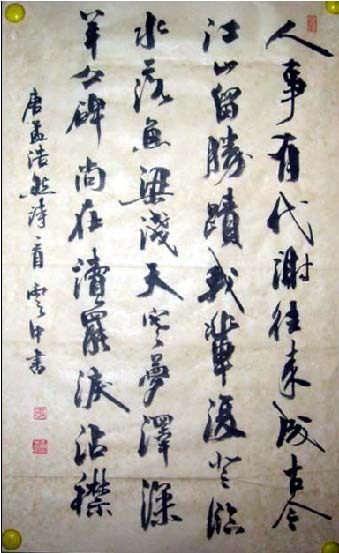 人事有代謝往来成古今
江山留勝蹟我輩復登臨
水落魚梁淺天寒夢澤深
羊公碑尚在讀罷淚沾襟
唐孟浩然詩一首 書